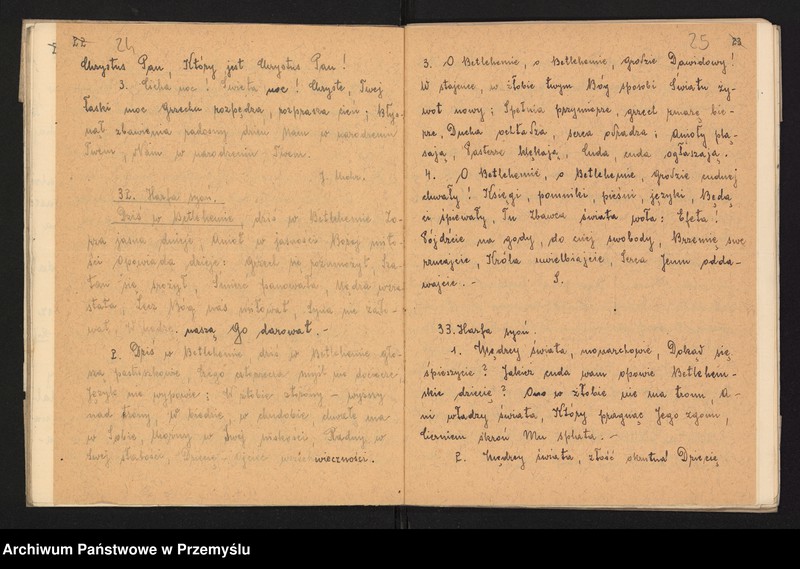 22 24
Chrystus Pan, Który jest Chrystus Pan!
3. Cicha noc! Święta noc! Chryste, Twej
łaski moc Grzechu rozpędza, rozprasza cień; Błys-
nął zbawienia radosny dzień Nam w narodzeniu
Twem, Nam w narodzeniu Twem.
J. Mohr.
32. Harfa syon.
Dziś w Betlehemie, dziś w Betlehemie Zo-
rza jasna dnieje, Anioł w jasności Bożej miło-
ści opowiada dzieje: Grzech się rozmnożył, Sza-
tan się srożył, Śmierć panowała, Nędza wzra-
stała, Lecz Bóg nas miłował, Syna nie żało-
wał, W nędzę naszą Go darował.-
2. Dziś w Betlehemie dziś w Betlehemie gło-
szą pastuszkowie, Czego człowiecza myśl nie dociecze
Język nie wypowie: W żłobie złożony - wyższy
nad trony, W biedzie, w chudobie chwałę ma
w Sobie, Możny w Swej niskości, Radny w
Swej słabości, Dziecię - ojciec wieczności.
25 23
3. O Betlehemie, o Betlehemie, grodzie Dawidowy!
W stajence, w żłobie twym Bóg sposobi Światu ży-
wot nowy; Spełnia przymierze, grzech zmazę bie-
rze, Ducha ochładza, serca odradza; Anioły plą-
sają, Pasterze klękają, Cuda, cuda ogłaszają.
4. O Betlehemie, o Betlehemie, grodzie cudnej
chwały! Księgi, pomniki, pieśni, języki, Będą
ci śpiewały, Tu Zbawca świata woła: Efeta!
Pójdźcie na gody, do cnej swobody, Brzemię swe
zrucajcie, Króla uwielbiajcie, Serca Jemu odda-
wajcie.- S.
33. Harfa syon.
1. Mędrcy świata, monarchowie, Dokąd się
śpieszycie? Jakież cuda wam opowie Betlehem-
skie dziecię? Ono w żłobie nie ma tronu, A-
ni władzy świata, Który pragnąc Jego zgonu,
Cierniem skroń Mu splata.-
2. Mędrcy świata, złość okrutna! Dziecię
Archiwum Państwowe w Przemyślu